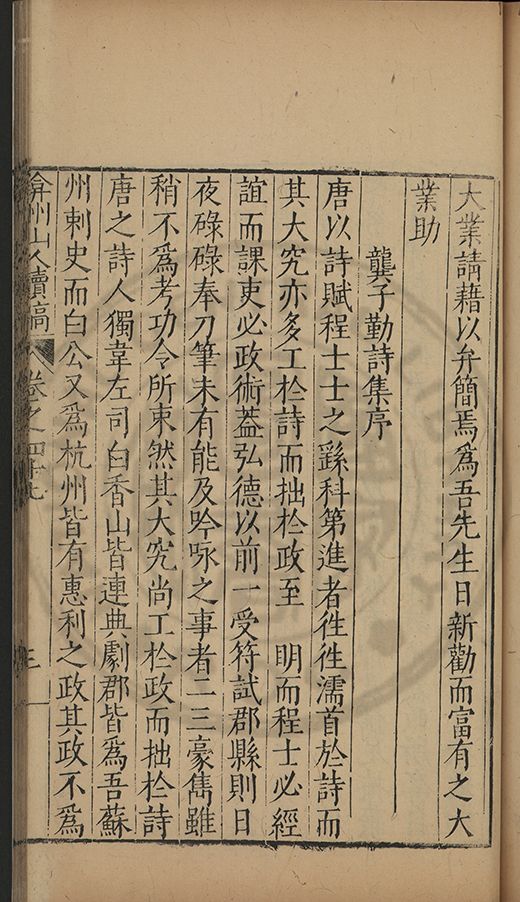 大業請藉以弁簡焉爲吾先生日新勸而富有之大
業助
龔子勤詩集序
唐以詩賦程士士之繇科第進者徃徃濡首於詩而
其大究亦多工於詩而拙於政至　明而程士必經
誼而課吏必政術葢弘德以前一受符試郡縣則日
夜碌碌奉刀筆未有能及吟咏之事者二三豪雋雖
稍不爲考功令所束然其大究尚工於政而拙於詩
唐之詩人獨韋左司白香山皆連典劇郡皆爲吾蘇
州刺史而白公又爲杭州皆有惠利之政其政不爲
弇州山人續稿 卷之四十七 三